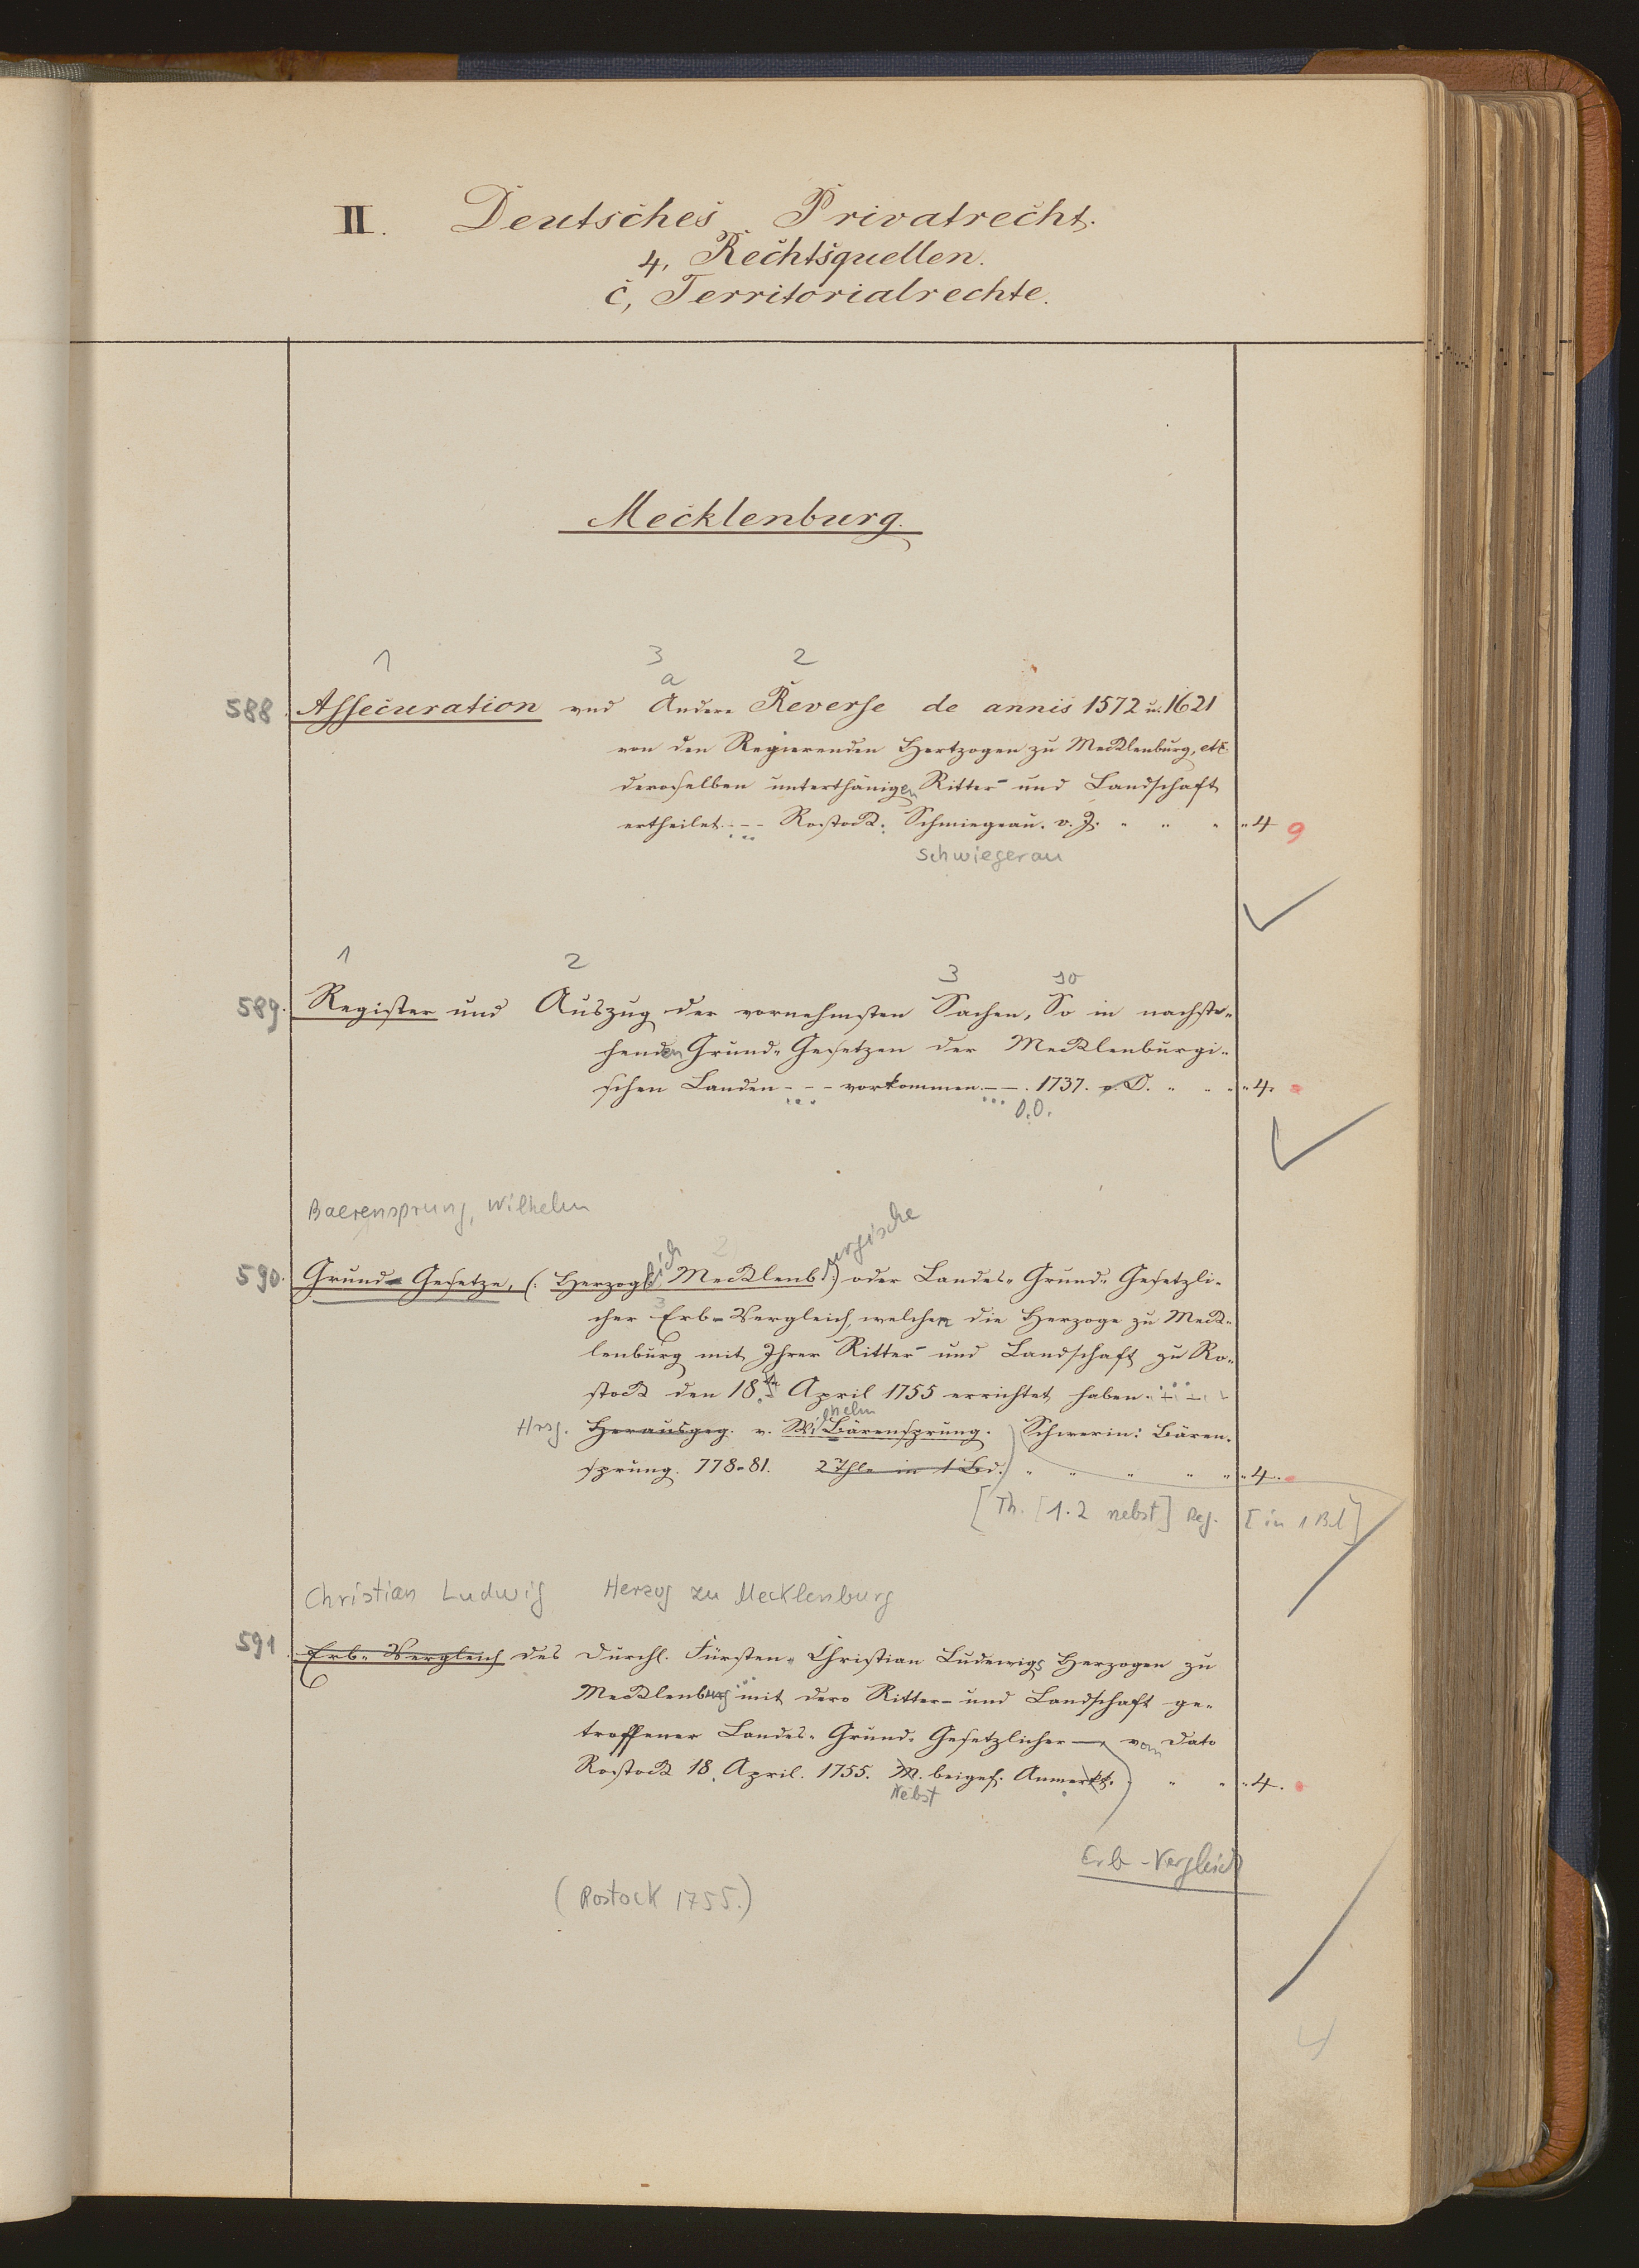 II. Deutsches Privatrecht.
4, Rechtsquellen.
c, Territorialrechte.
Mecklenburg.
1 3 2
a
588. Assecuration und Andere Reverse de annis 1572 u. 1621
von den Regierenden Hertzogen zu Mecklenburg, etc.
deroselben unterthänigen Ritter- und Landschaft
ertheilet. - - - Rostock: Schwiegerau. o. J. " " " " 4 9
Schwiegerau
1 2 3 so
589. Register und Auszug der vornehmsten Sachen, So in nachste-
henden Grund-Gesetzen der Mecklenburgi-
schen Landen - - - vorkommen - - . 1737. o. O. " " " " 4.
... ... O.O.
Baerensprung, Wilhelm
lich urgische
590. Grund-Gesetze, (: Herzogl. Mecklenb :) oder Landes-Grund-Gesetzli-
3
cher Erb-Vergleich, welchen die Herzoge zu Meck-
lenburg mit Ihrer Ritter- und Landschaft zu Ro-
stock den 18ten April 1755 errichtet haben.
helm
Hrsg. Herausgeg. v. Wilh. Bärensprung. Schwerin: Bären-
sprung. 778-81. 2 Thle in 1 Bd. " " " " " 4.
[Th. [1.2 nebst] Reg. [in 1 Bd]
Christian Ludwig Herzog zu Mecklenburg
591. Erb-Vergleich des Durchl. Fürsten- Christian Ludewigs Herzogen zu
Mecklenburg mit dero Ritter- und Landschaft ge-
troffener Landes-Grund-Gesetzlicher —, vom Dato
Rostock 18. April. 1755. M. beigef. Anmerkk. " " " 4.
Nebst
Erb-Vergleich
(Rostock 1755.)
4